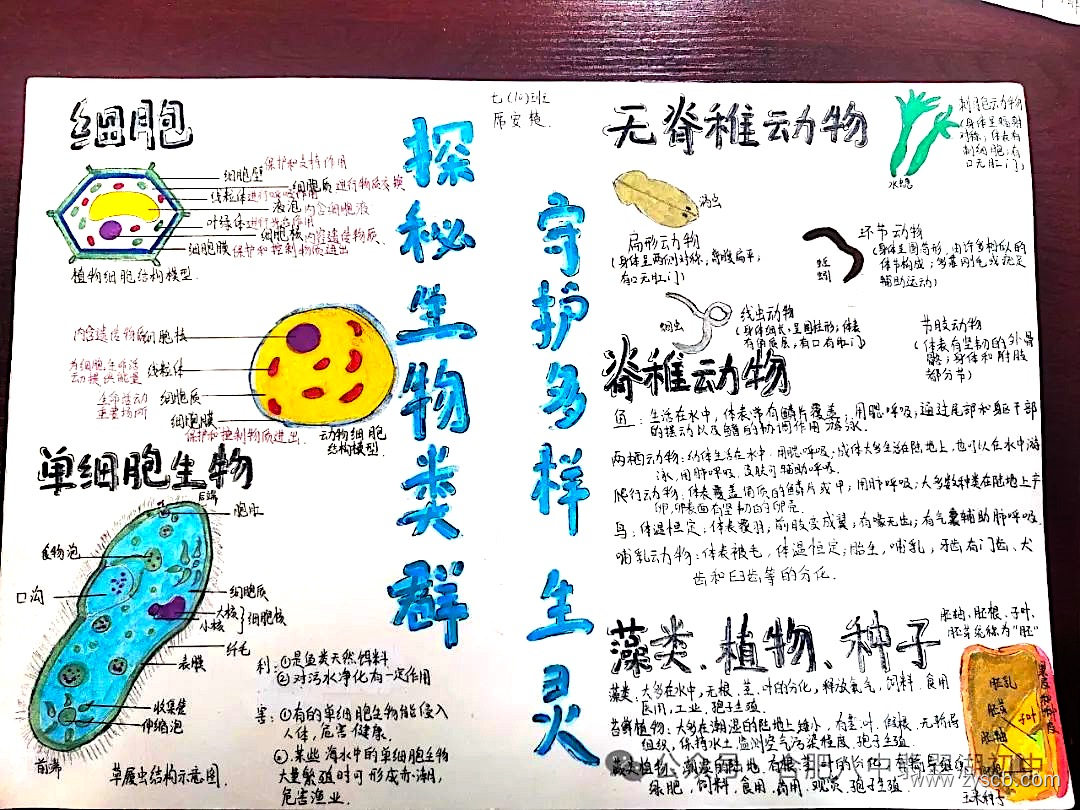 细胞
细胞壁 保护和支持作用
细胞质 进行物质交换
线粒体 进行呼吸作用
液泡 内含细胞液
叶绿体 进行光合作用
细胞核 内容遗传物质
细胞膜 保护和控制物质进出
植物细胞结构模型
内含遗传物质 细胞核
为细胞生命活
动提供能量 线粒体
生命活动
重要场所
细胞质
细胞膜
保护和控制物质进出
动物细胞
结构模型
单细胞生物
后端
胞肛
食物泡
口沟
细胞质
大核
小核
细胞核
纤毛
表膜
收集管
伸缩泡
前端
草履虫结构示意图
利:①是鱼类天然饵料
②对污水净化有一定作用
害:①有的单细胞生物能侵入
人体,危害健康.
②.某些海水中的单细胞生物
大量繁殖时可形成赤潮,
危害渔业.
七(10)班
探秘生物类群
守护多样生灵
无脊椎动物
刺胞动物
(身体呈辐射
对称;体表有
刺细胞;有
口无肛门)
水螅
涡虫
扁形动物
(身体呈两侧对称,背腹扁平;
有口无肛门)
环节动物
(身体呈圆筒形,由许多相似的
体节构成;多靠刚毛或疣足
辅助运动)
蚯蚓
线虫动物
(身体细长,呈圆柱形;体表
有角质层;有口有肛门)
蛔虫
节肢动物
(体表有坚韧的外骨
骼;身体和附肢
都分节)
脊椎动物
鱼:生活在水中,体表常有鳞片覆盖;用鳃呼吸,通过尾部和躯干部
的摆动以及鳍的协调作用游泳.
两栖动物:幼体生活在水中,用鳃呼吸;成体大多生活在陆地上,也可以在水中游
泳,用肺呼吸,皮肤可辅助呼吸.
爬行动物:体表覆盖角质的鳞片或甲;用肺呼吸;大多数种类在陆地上产
卵,卵表面有坚韧的卵壳.
鸟:体温恒定;体表覆羽,前肢变成翼;有喙无齿;有气囊辅助肺呼吸.
哺乳动物:体表被毛,体温恒定;胎生,哺乳,牙齿有门齿、犬
齿和臼齿等的分化.
藻类、植物、种子
胚轴、胚根、子叶、
胚芽总称为“胚”
藻类:大多在水中,无根、茎、叶的分化,释放氧气,饲料,食用
医用,工业,孢子生殖.
苔藓植物:大多在潮湿的陆地上矮小,有茎、叶、假根,无输导
组织,保持水土,监测空气污染程度,孢子生殖
绿肥,饲料,食用,药用,观赏,孢子生殖.
胚乳
胚芽
子叶
胚轴
果皮和种皮
玉米种子
www.zyscb.com